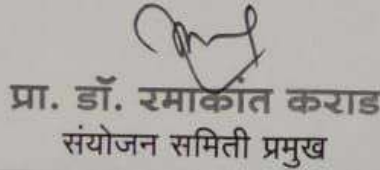 प्रा. डॉ. रमाकांत कराड
संयोजन समिती प्रमुख